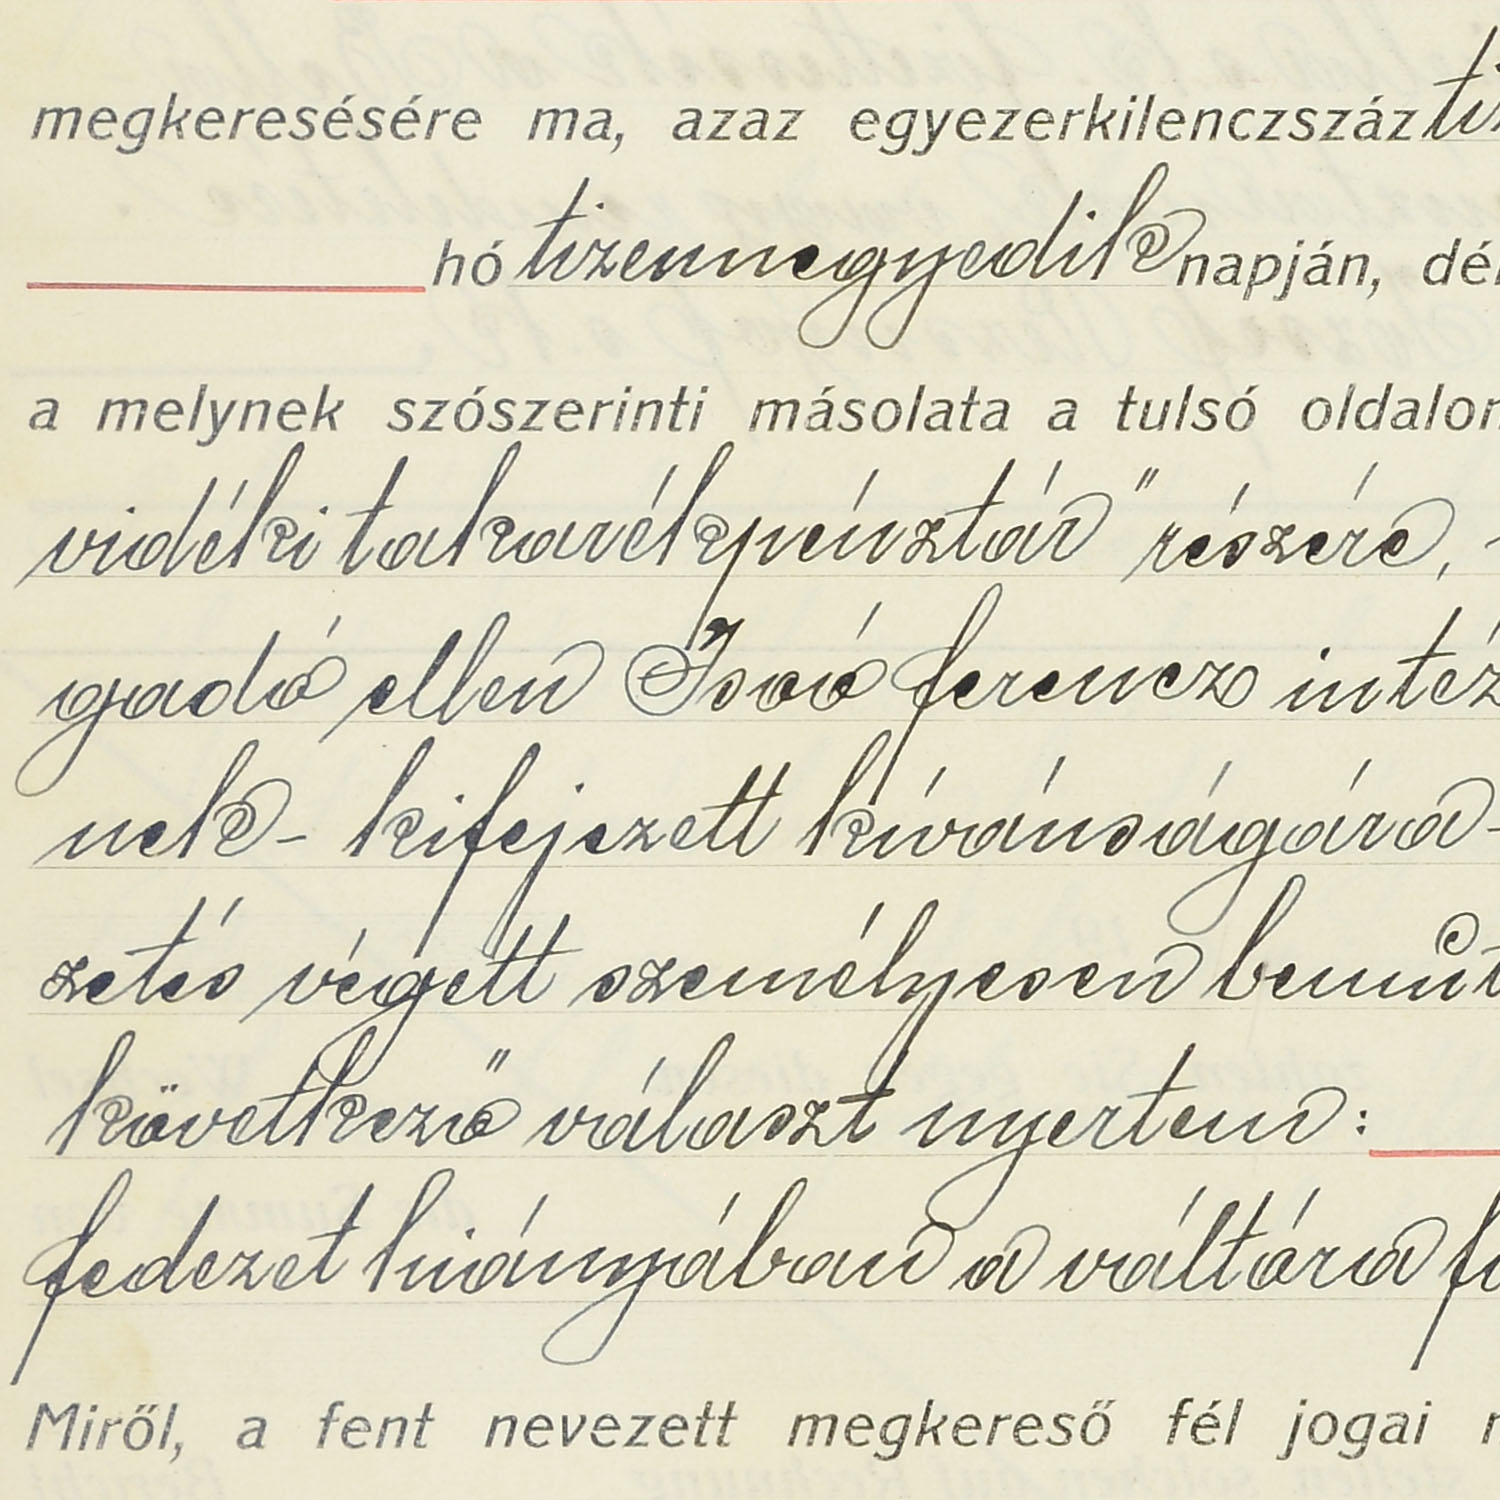 megkeresésére ma, azaz egyezerkilenczszáz
hó tizennegyedik napján, dél
a melynek szószerinti másolata a tulsó oldalon
vidéki takarékpénztár" részére,
gadó ellen Ivó ferencz intéz
nek - kifejezett kívánságára -
zetés végett személyesen bemut
következő választ nyertem:
fedezet hiányában a váltóra fi
Miről, a fent nevezett megkereső fél jogai